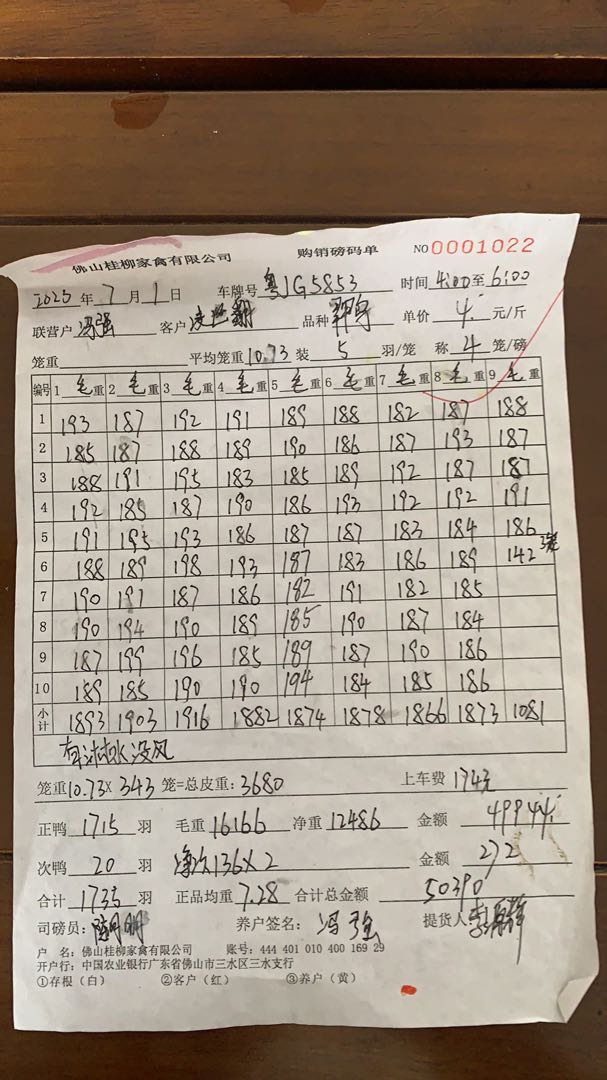 佛山桂柳家禽有限公司 购销磅码单 NO 0001022
2025 年 7 月 1 日 车牌号 粤JG5853 时间 4:00 至 6:00
联营户 冯强 客户 品种 单价 4. 元/斤
笼重 平均笼重 10.73 装 5 羽/笼 称 4 笼/磅
编号 1 毛 重 2 毛 重 3 毛 重 4 毛 重 5 毛 重 6 毛 重 7 毛 重 8 毛 重 9 毛 重
1 193 187 192 191 189 188 182 187 188
2 185 187 188 189 190 186 187 193 187
3 188 191 195 183 185 189 192 187 187
4 192 185 187 190 186 193 192 192 191
5 191 195 193 186 187 187 183 184 186
6 188 189 198 193 187 183 186 189 142 3笼
7 190 191 187 186 182 191 182 185
8 190 194 190 189 185 190 187 184
9 187 199 196 185 189 187 190 186
10 189 185 190 190 194 184 185 186
小计 1893 1903 1916 1882 1874 1878 1866 1873 1081
有淋水没风
笼重 10.73× 343 笼=总皮重: 3680 上车费 174元
正鸭 1715 羽 毛重 16166 净重 12486 金额 49944.
次鸭 20 羽 净次136×2 金额 272
合计 1735 羽 正品均重 7.28 合计总金额 50390
司磅员: 养户签名: 冯强 提货人
户 名: 佛山桂柳家禽有限公司 账号: 444 401 010 400 169 29
开户行: 中国农业银行广东省佛山市三水区三水支行
①存根（白） ②客户（红） ③养户（黄）